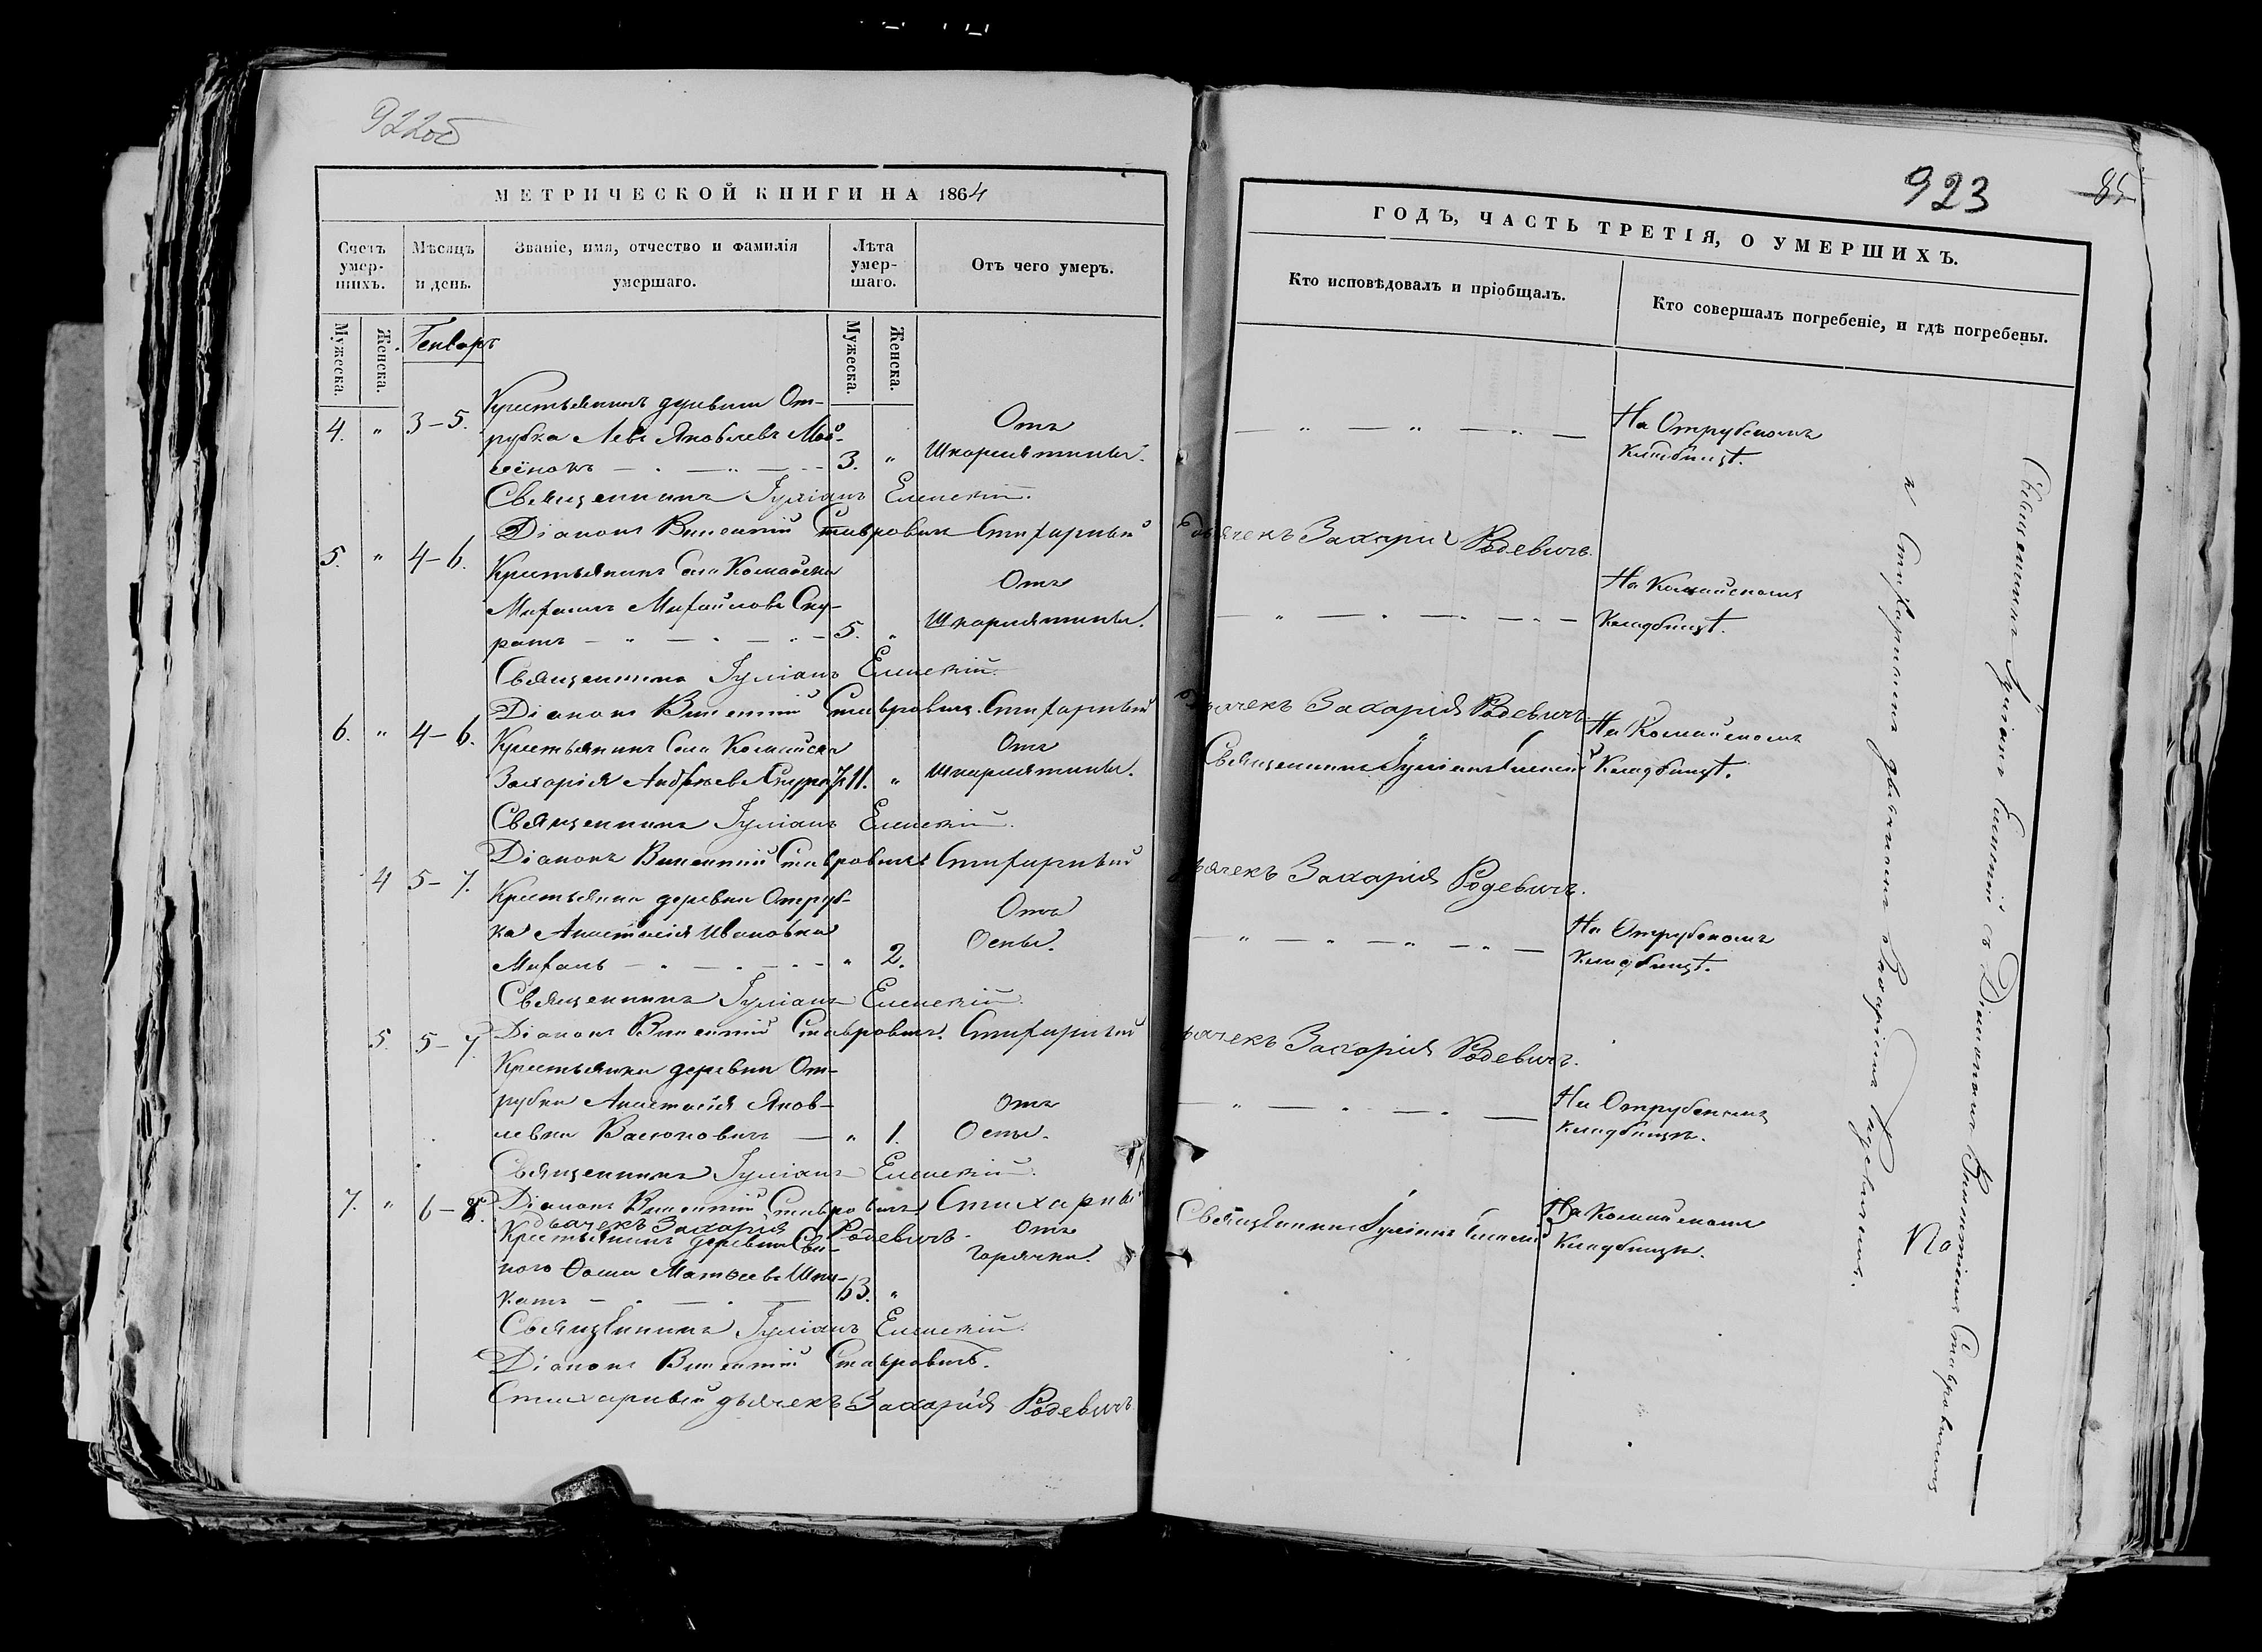 922об
МЕТРИЧЕСКОЙ КНИГИ НА 1864
Счетъ умер- шихъ.
Мѣсяцъ и день.
Званіе, имя, отчество и фамилія умершаго.
Лѣта умер- шаго.
Отъ чего умеръ.
Мужеска.
Женска.
Генваръ
Мужеска.
Женска.
Крестьянинъ деревни От-
4. " 3-5. рубка Левъ Яковлевъ Отъ
3. " Шкорлятины.
Священникъ Іуліанъ Еленскій.
Діаконъ Викентій Ставровичъ Стихарный
5. " 4-6. Крестьянинъ Села Комайска Отъ
Михаилъ Михайловъ Ску-
ратъ 5. " Шкорлятины.
Священникъ Іуліанъ Еленскій.
Діаконъ Викентій Ставровичъ. Стихарный
6. " 4-6. Крестьянинъ Села Комайска Отъ
Захарія Андреевъ 11. " Шкорлятины.
Священникъ Іуліанъ Еленскій.
Діаконъ Викентій Ставровичъ Стихарный
4 5-7. Крестьянка деревни Отруб- Отъ
ка Анастасія Ивановна Оспы.
" 2.
Священникъ Іуліанъ Еленскій.
5. 5-7. Діаконъ Викентій Ставровичъ. Стихарный
Крестьянка деревни От-
рубка Анастасія Яков- Отъ
левна Васюковичъ " 1. Оспы.
Священникъ Іуліанъ Еленскій.
7. " 6-8. Діаконъ Викентій Ставровичъ Стихарный
дьячекъ Захарія Родевичъ.
Крестьянинъ деревни Сви- Отъ
ного Ѳома Матѳеевъ Шку- Горячки.
ратъ 63. "
Священникъ Іуліанъ Еленскій.
Діаконъ Викентій Ставровичъ.
Стихарный дьячекъ Захарія Родевичъ
923
85
ГОДЪ, ЧАСТЬ ТРЕТІЯ, О УМЕРШИХЪ.
Кто исповѣдовалъ и пріобщалъ.
Кто совершалъ погребеніе, и гдѣ погребены.
На Отрубскомъ
Кладбищѣ.
дьячекъ Захарія Родевичъ.
На Комайскомъ
Кладбищѣ.
дьячекъ Захарія Родевичъ
На Комайскомъ
Священникъ Іуліанъ Еленскій Кладбищѣ.
дьячекъ Захарія Родевичъ.
На Отрубскомъ
Кладбищѣ.
дьячекъ Захарія Родевичъ.
На Отрубскомъ
Кладбищѣ.
На Комайскомъ
Священникъ Іуліанъ Еленскій Кладбищѣ.
Священникъ Іуліанъ Еленскій съ Діакономъ Викентіемъ Ставровичемъ
и Стихарнымъ дьячкомъ Захаріемъ Родевичемъ.
По